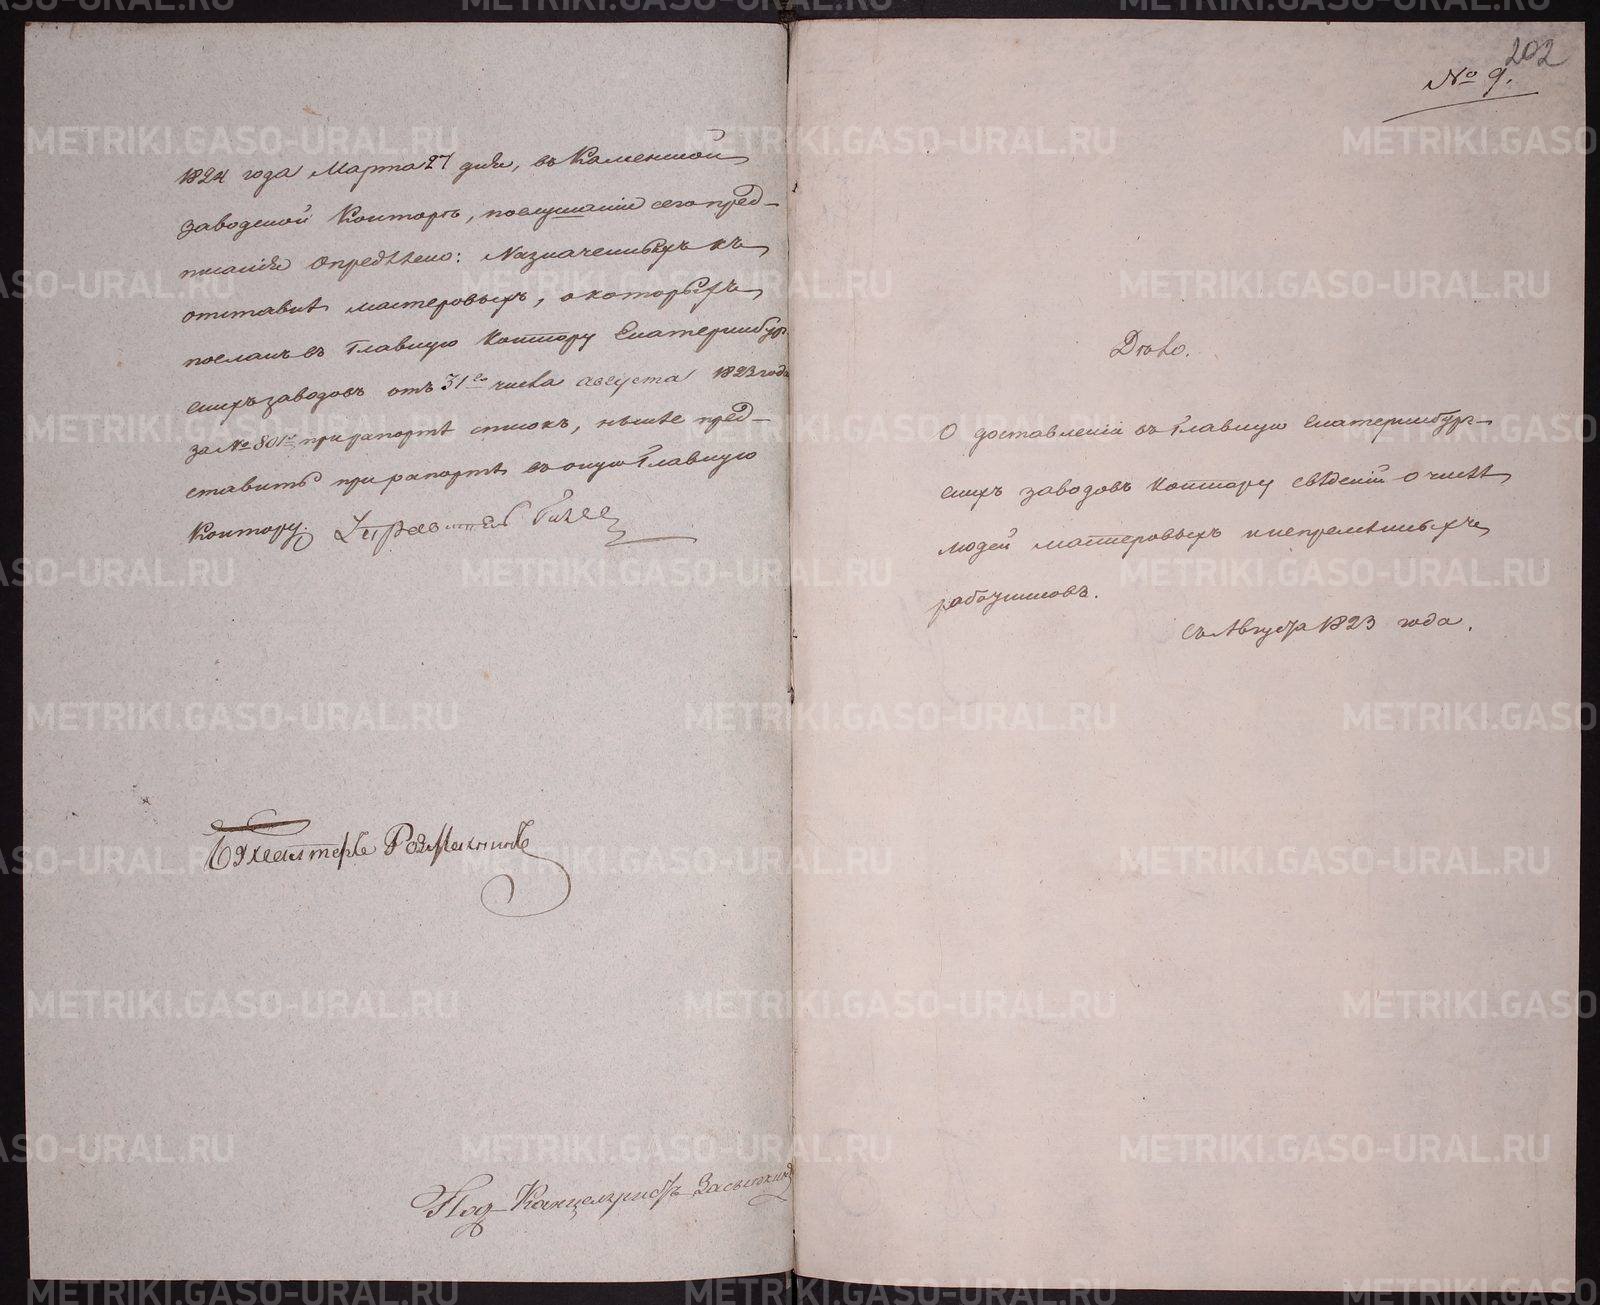 1824 года Марта 27 дня, въ Каменской
заводской Конторѣ, послушаніи сего пред-
писанія Опредѣлено: Назначенныхъ къ
отставкѣ мастеровыхъ, о которыхъ
посланъ въ Главную Контору Екатеринбург
скихъ заводовъ отъ 31го числа августа 1823 года
за № 801м при рапортѣ списокъ, нынѣ пред-
ставить при рапортѣ въ оную Главную
Контору.
Бухгалтеръ
Под-Канцеляристъ
202
№ 9.
Дѣло.
О доставленіи въ Главную Екатеринбург-
скихъ заводовъ Контору свѣденій о числѣ
людей мастеровыхъ и непремѣнныхъ
работниковъ.
съ Августа 1823 года.
METRIKI.GASO-URAL.RU